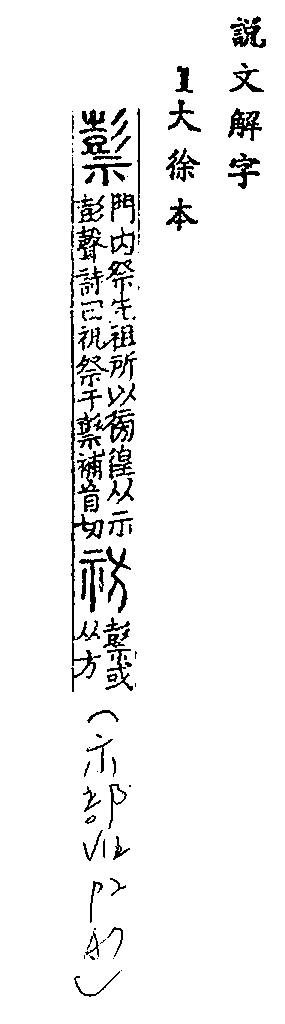 說文解字
1大徐本
𥛱
門內祭先祖所以徬徨从示
彭聲詩曰祝祭于𥛱補盲切
祊
𥛱或
从方
(示部 V1上 P2 A7)